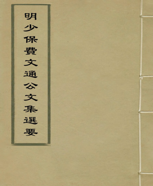 明少保費文通公文集選要